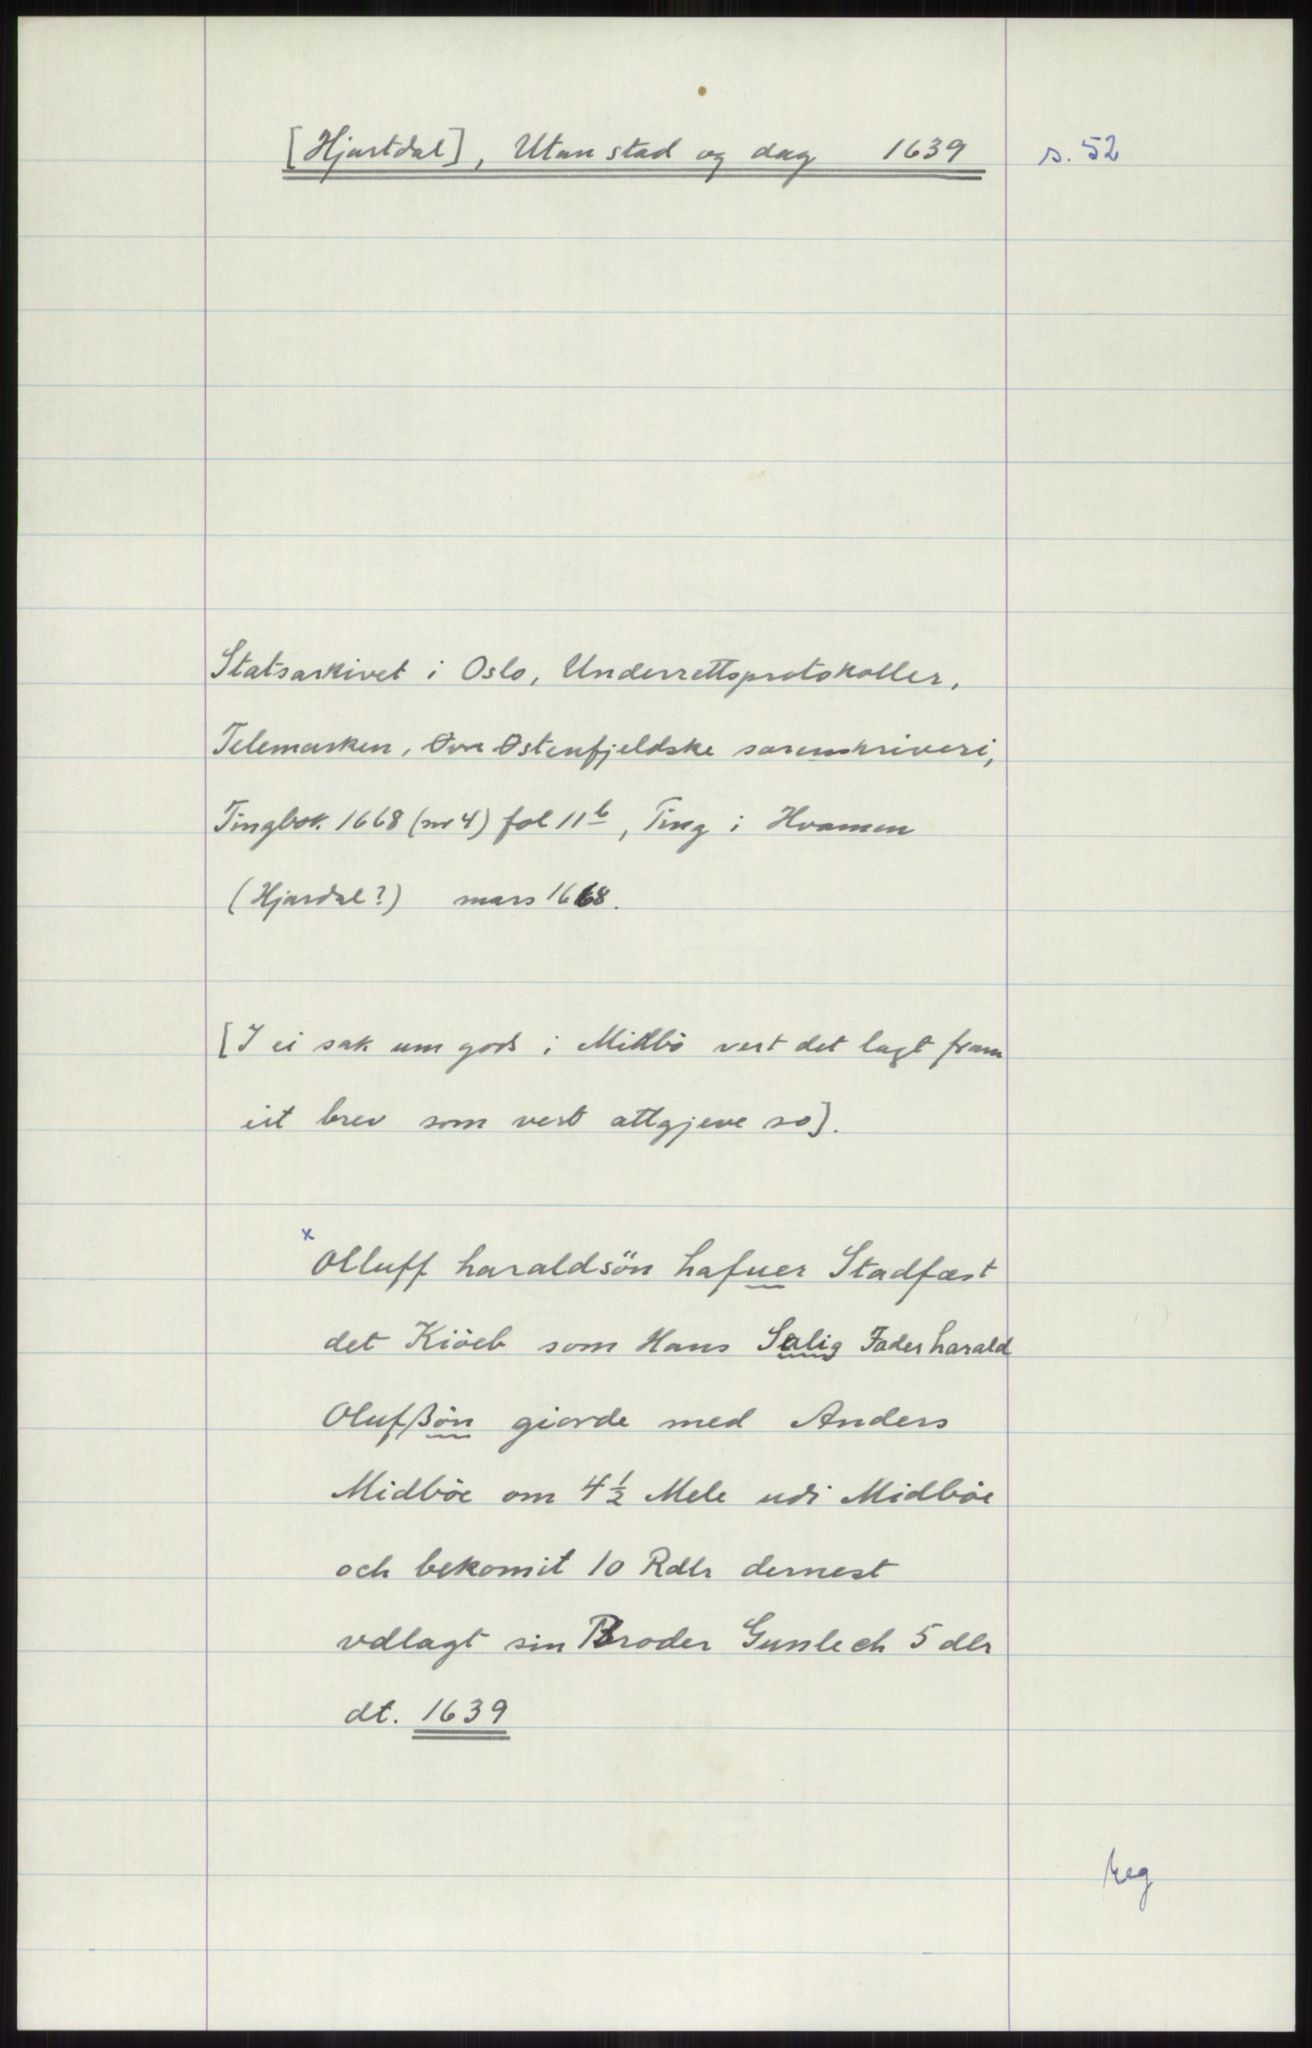 [Hjartdal], Utan stad og dag 1639 s. 52
Statsarkivet i Oslo, Underrettsprotokoller,
Telemarken, Østenfjeldske sorenskriveri,
Tingbok 1668 (nr 4) fol 11b, Ting i Hvamen
(Hjardal?) mars 1668.
[I ei sak um gods i Midbö vert det lagt fram
eit brev som vert attgjeve so].
x Olluff haraldsön hafuer Stadfæst
det Kiöeb som Hans Salig Fader harald
Olufßön giorde med Anders
Midböe om 4 1/2 Mele udi Midböe
och bekomit 10 Rdlr dernest
vdlagt sin Broder Gunlech 5 dlr
dt. 1639
Reg